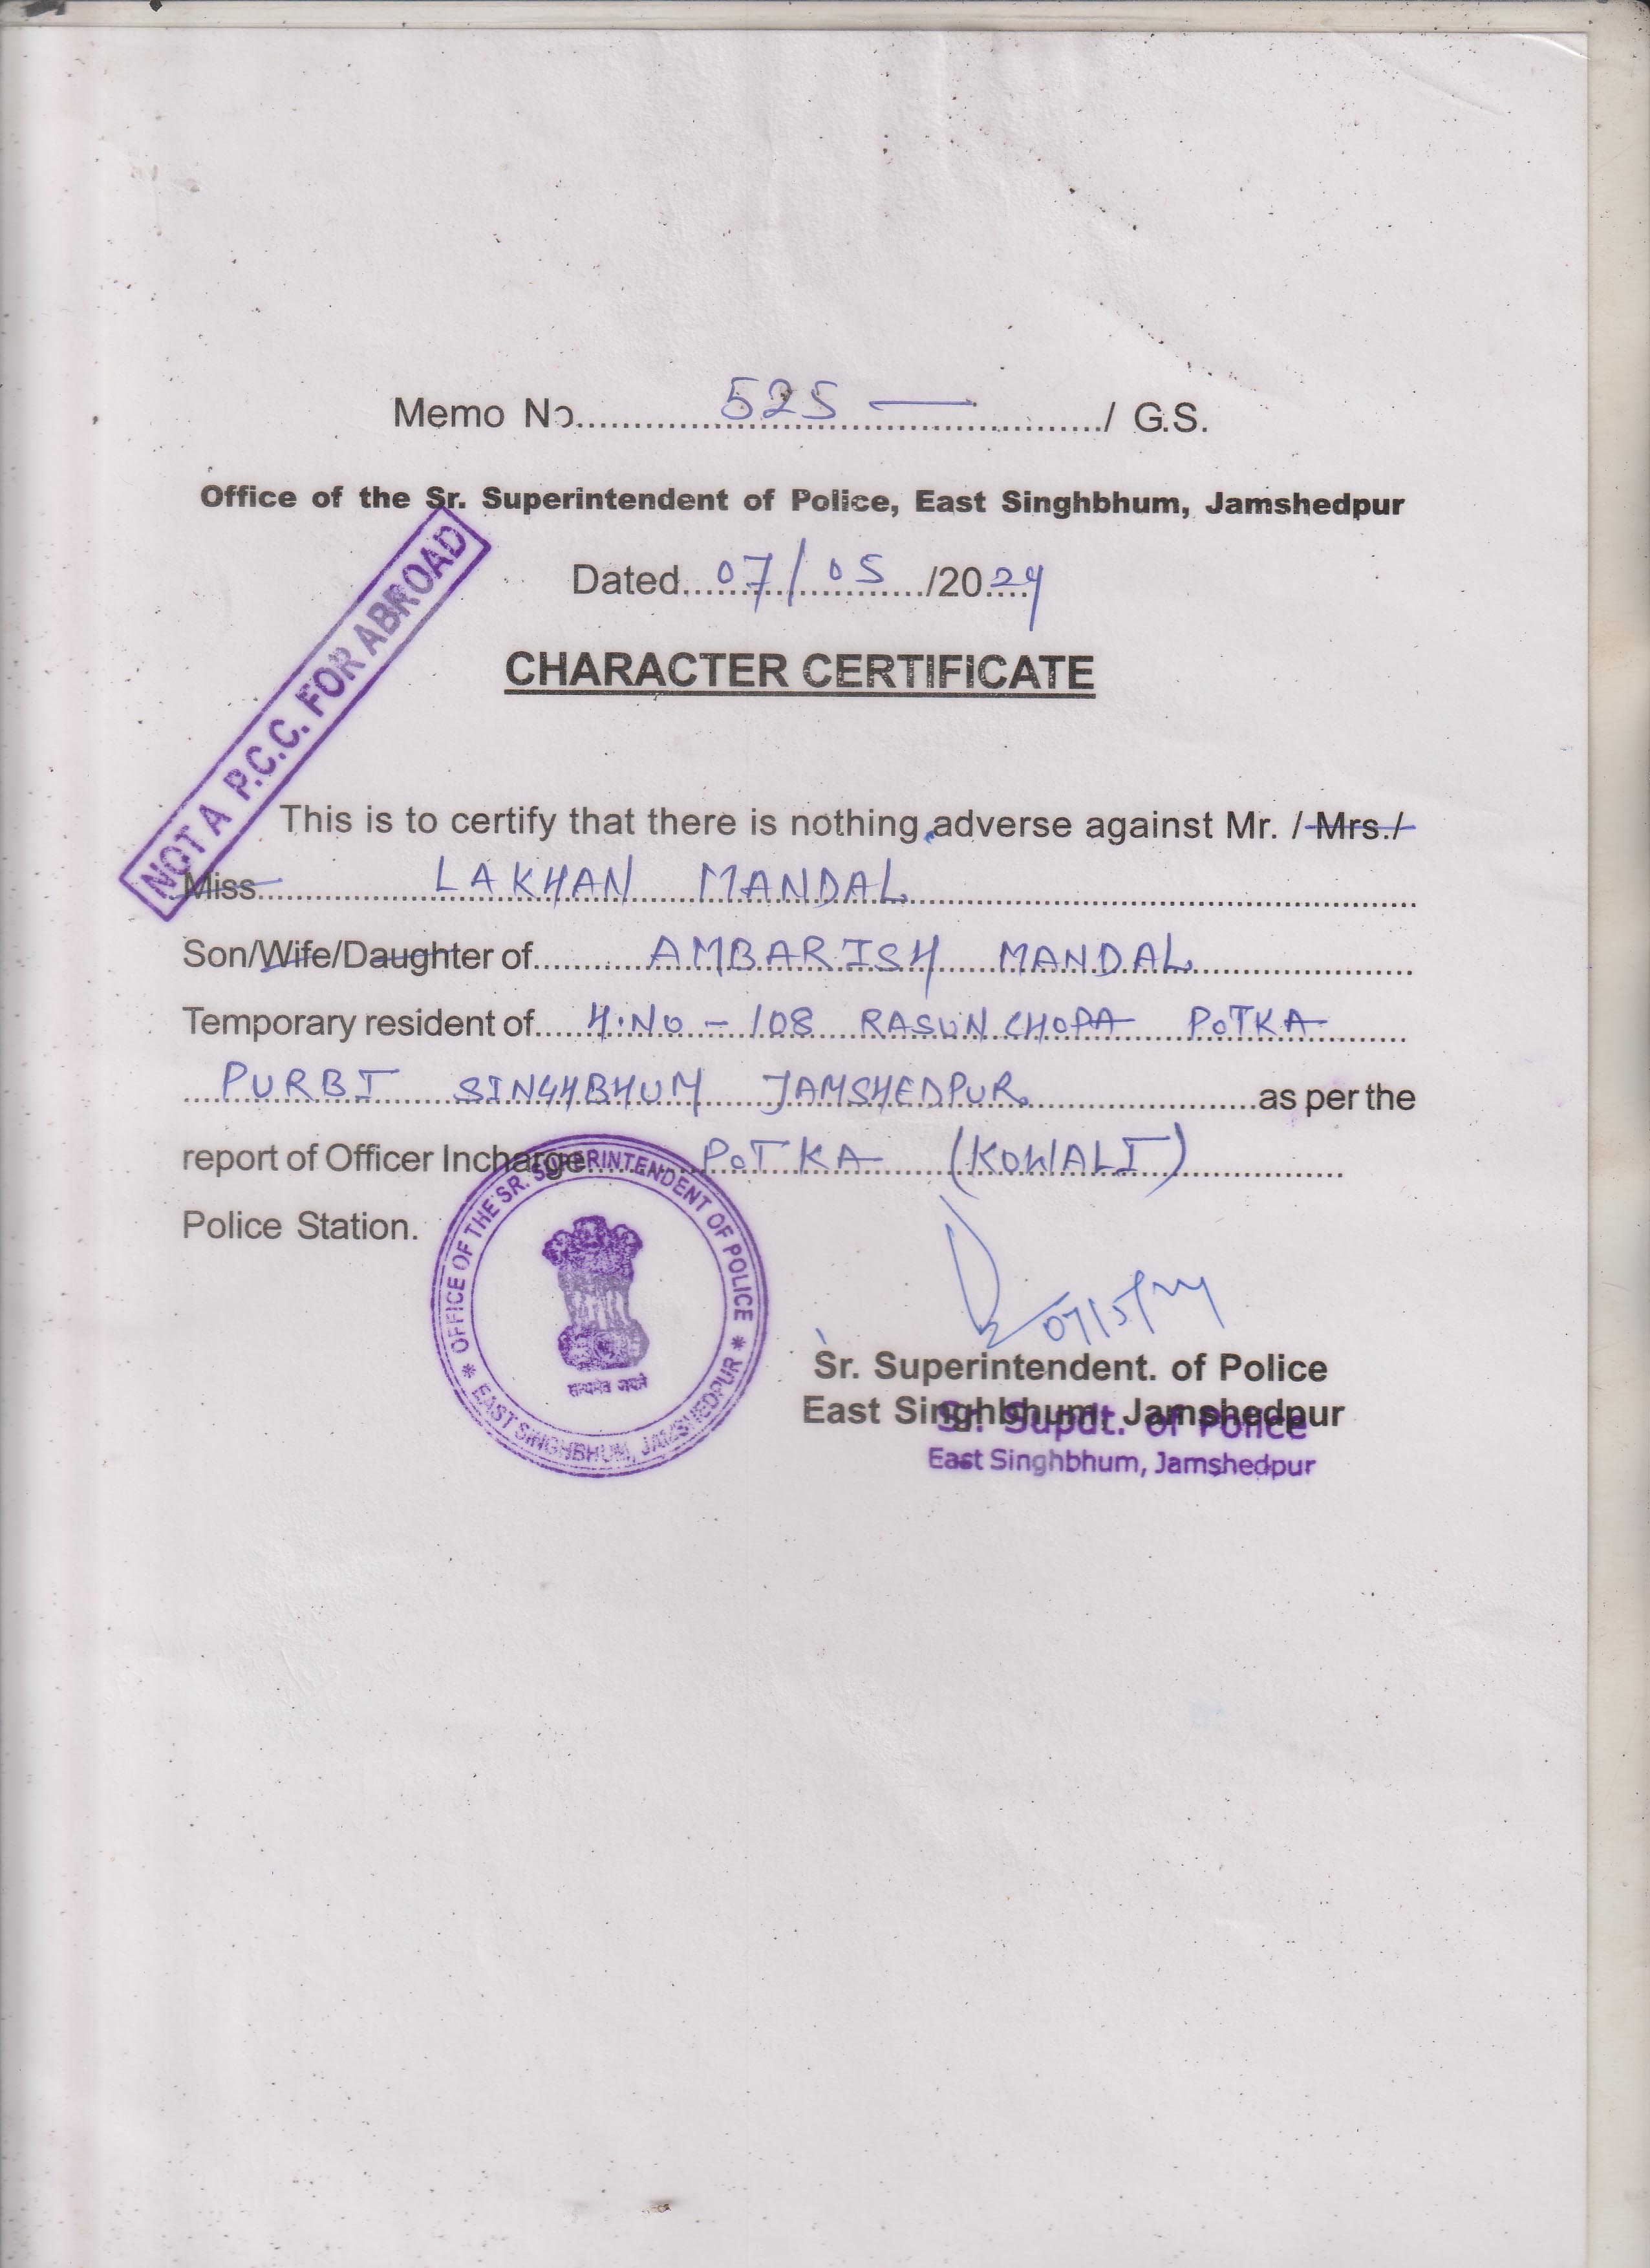 Memo No. 525 — / G.S.
Office of the Sr. Superintendent of Police, East Singhbhum, Jamshedpur
Dated 07/05/2024
NOT A P.C.C. FOR ABROAD
CHARACTER CERTIFICATE
This is to certify that there is nothing adverse against Mr. / Mrs./
Miss LAKHAN MANDAL
Son/Wife/Daughter of AMBARISH MANDAL
Temporary resident of H.NO - 108 RASUNCHOPA POTKA
PURBI SINGHBHUM JAMSHEDPUR. as per the
report of Officer Incharge POTKA (KOWALI)
Police Station.
OFFICE OF THE SR. SUPERINTENDENT OF POLICE * EAST SINGHBHUM, JAMSHEDPUR *
सत्यमेव जयते
07/5/24
Sr. Superintendent. of Police
East Singhbhum, Jamshedpur
Sr. Supdt. of Police
East Singhbhum, Jamshedpur